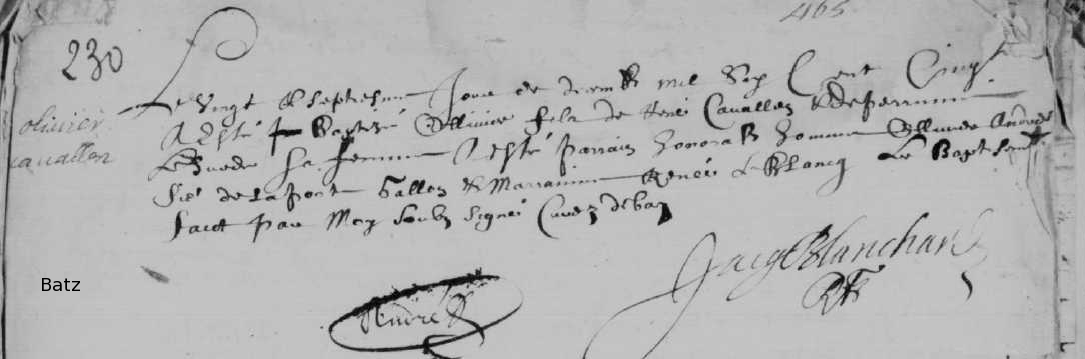 465
230
olivier
cavallen
Le Vingt & septiesme Jour de decemb mil Six Cent Cinq
A Esté Baptizé Ollivier fils de René Cavallen & de perrinne
Lehuede Sa femme A esté parrain honorab homme Ollivier André
Sr de la porte Salles & Marrainne Renée Le Blancq Le Baptesme
faict par Moy Soubz Signé Curé de baz
Jacq Blanchard
Batz
André